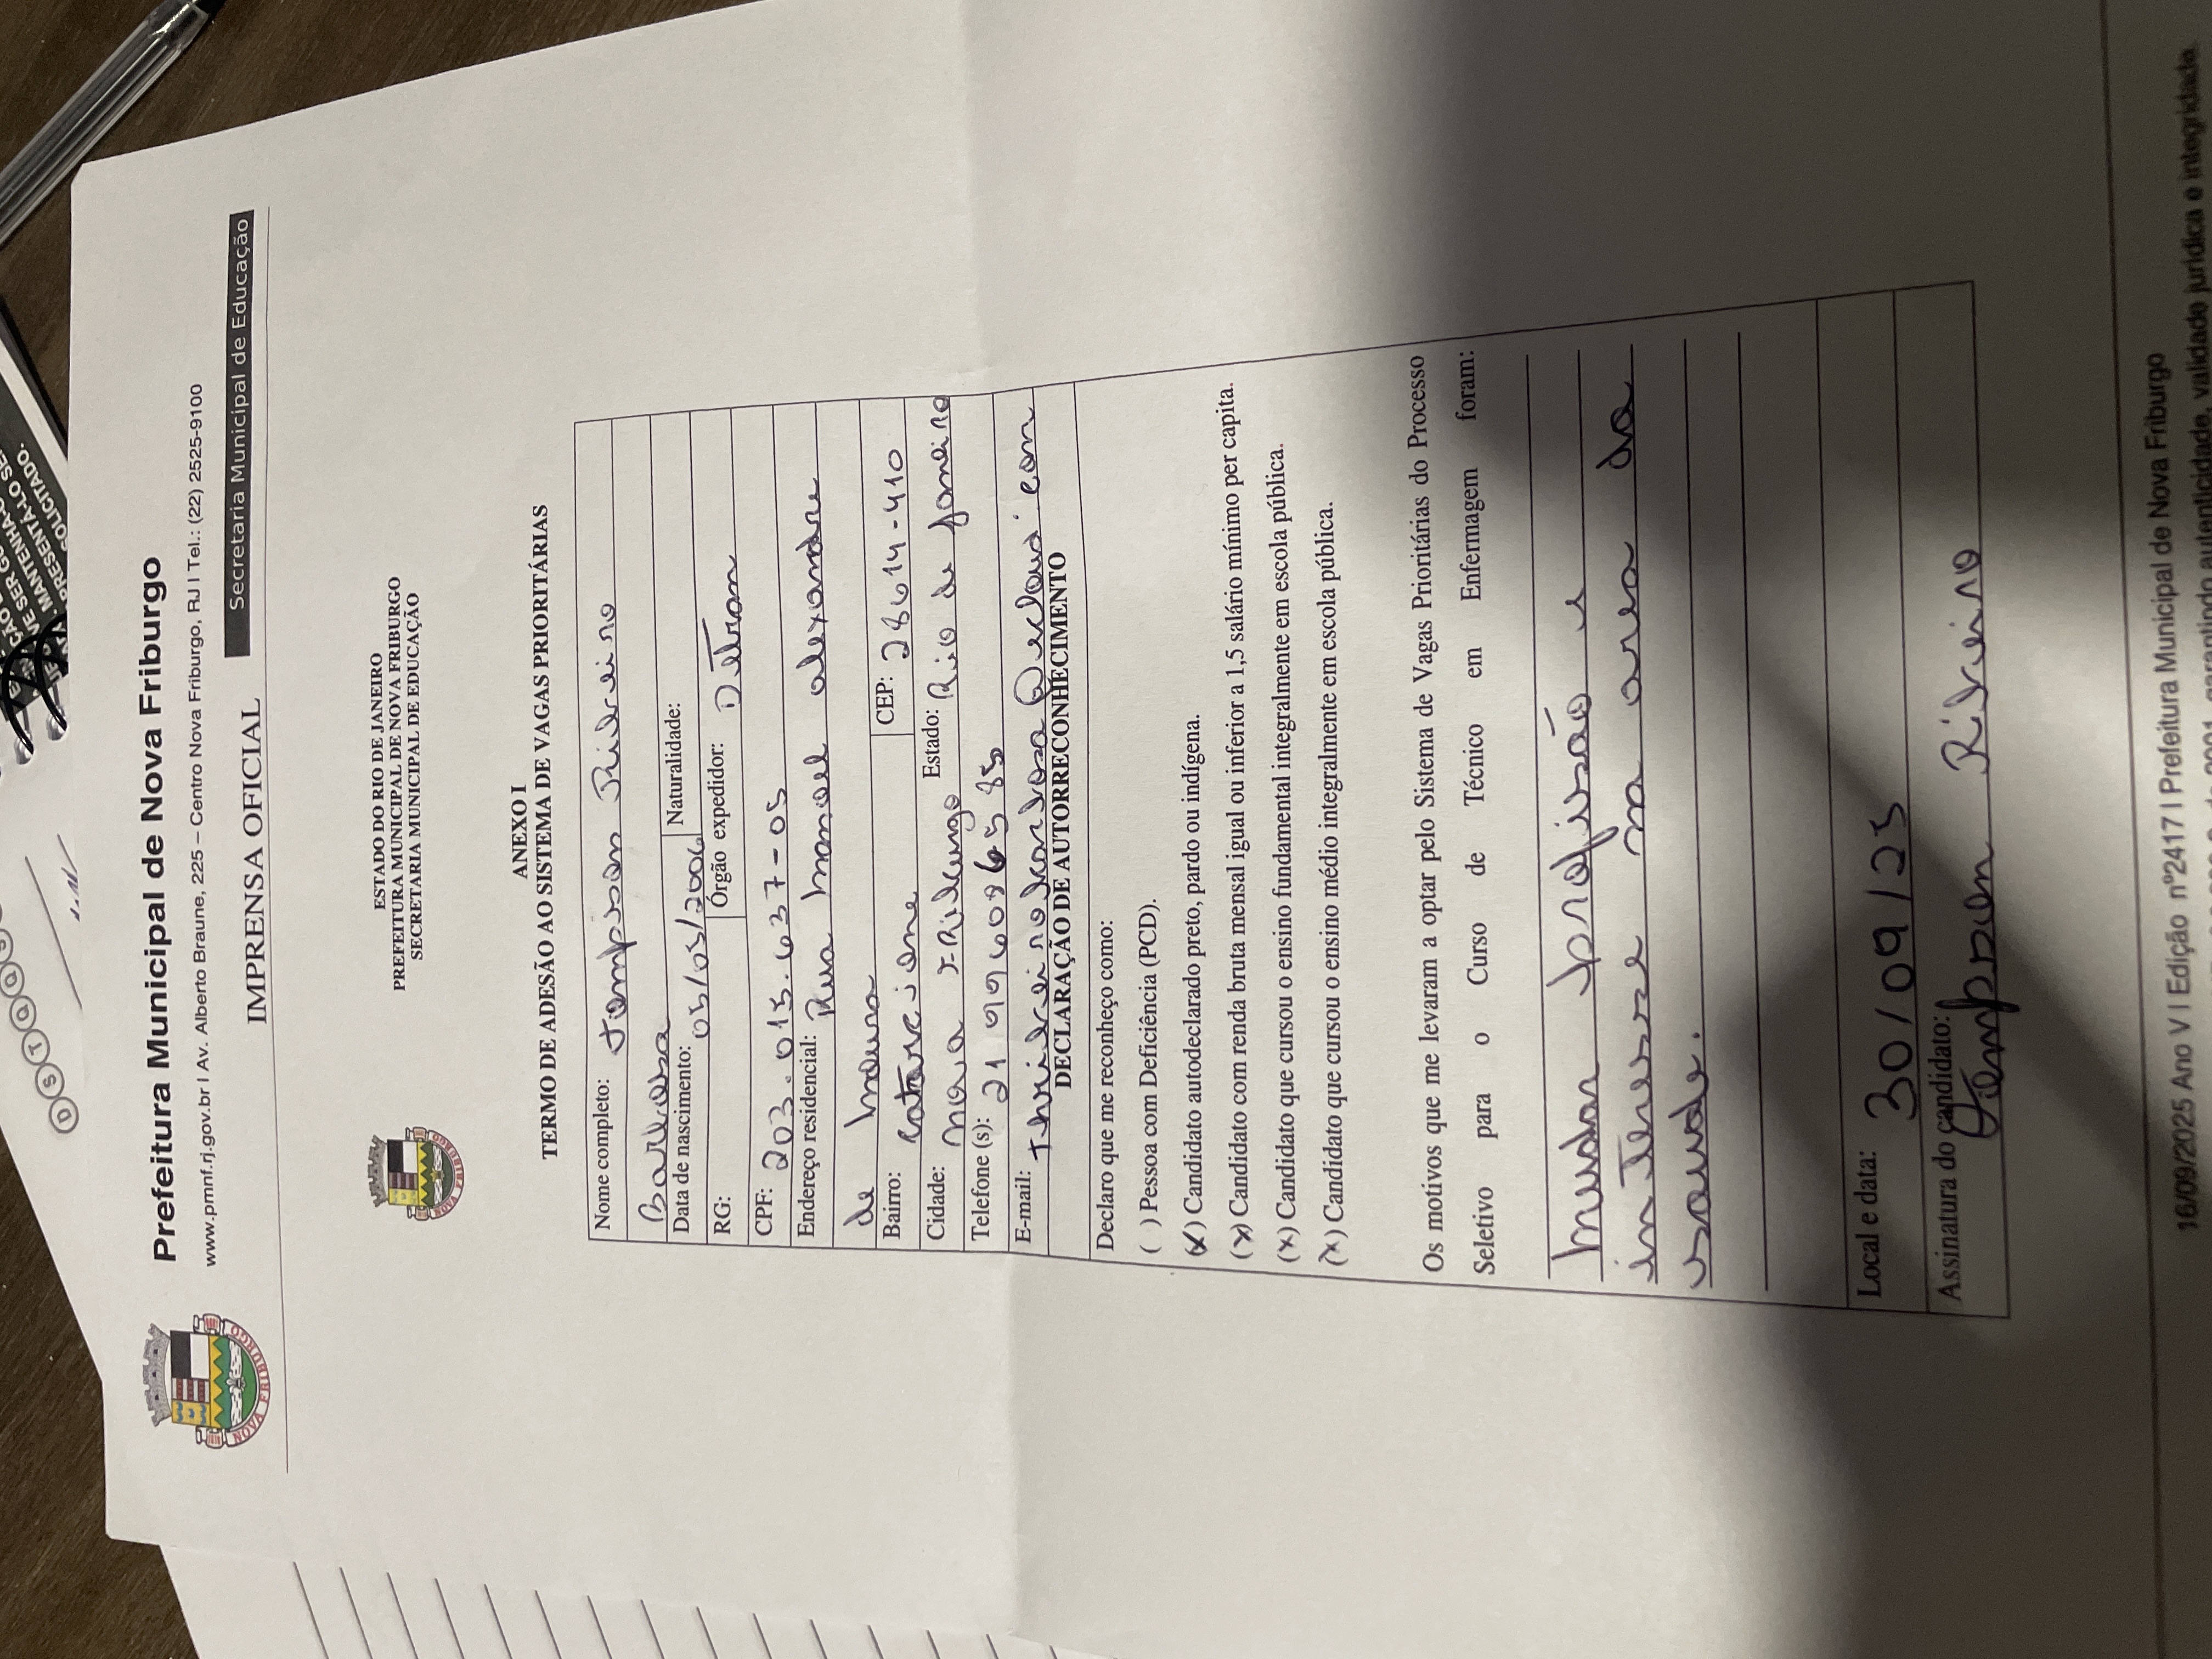 D S T Q Q S
MANTENHA-O
APRESENTÁ-LO SE
SOLICITADO.
Prefeitura Municipal de Nova Friburgo
www.pmnf.rj.gov.br | Av. Alberto Braune, 225 – Centro Nova Friburgo, RJ | Tel.: (22) 2525-9100
IMPRENSA OFICIAL Secretaria Municipal de Educação
NOVA FRIBURGO
ESTADO DO RIO DE JANEIRO
PREFEITURA MUNICIPAL DE NOVA FRIBURGO
SECRETARIA MUNICIPAL DE EDUCAÇÃO
NOVA FRIBURGO
ANEXO I
TERMO DE ADESÃO AO SISTEMA DE VAGAS PRIORITÁRIAS
Nome completo: Tompson Ribeiro
Barbosa
Data de nascimento: 05/05/2006 Naturalidade:
RG: Órgão expedidor: Detran
CPF: 203.015.637-05
Endereço residencial: Rua Manoel alexandre
de Moura
Bairro: CEP: 28614-410
Cidade: Nova Friburgo Estado: Rio de Janeiro
Telefone (s): 21
E-mail: thribeirobarbosa@icloud.com
DECLARAÇÃO DE AUTORRECONHECIMENTO
Declaro que me reconheço como:
( ) Pessoa com Deficiência (PCD).
(X) Candidato autodeclarado preto, pardo ou indígena.
(X) Candidato com renda bruta mensal igual ou inferior a 1,5 salário mínimo per capita.
(X) Candidato que cursou o ensino fundamental integralmente em escola pública.
(X) Candidato que cursou o ensino médio integralmente em escola pública.
Os motivos que me levaram a optar pelo Sistema de Vagas Prioritárias do Processo
Seletivo para o Curso de Técnico em Enfermagem foram:
Mudar profisão e
interesse na area da
saude.
Local e data: 30/09/25
Assinatura do candidato: Tompson Ribeiro
16/09/2025 Ano V | Edição nº2417 | Prefeitura Municipal de Nova Friburgo
de 2001, garantindo autenticidade, validade jurídica e integridade